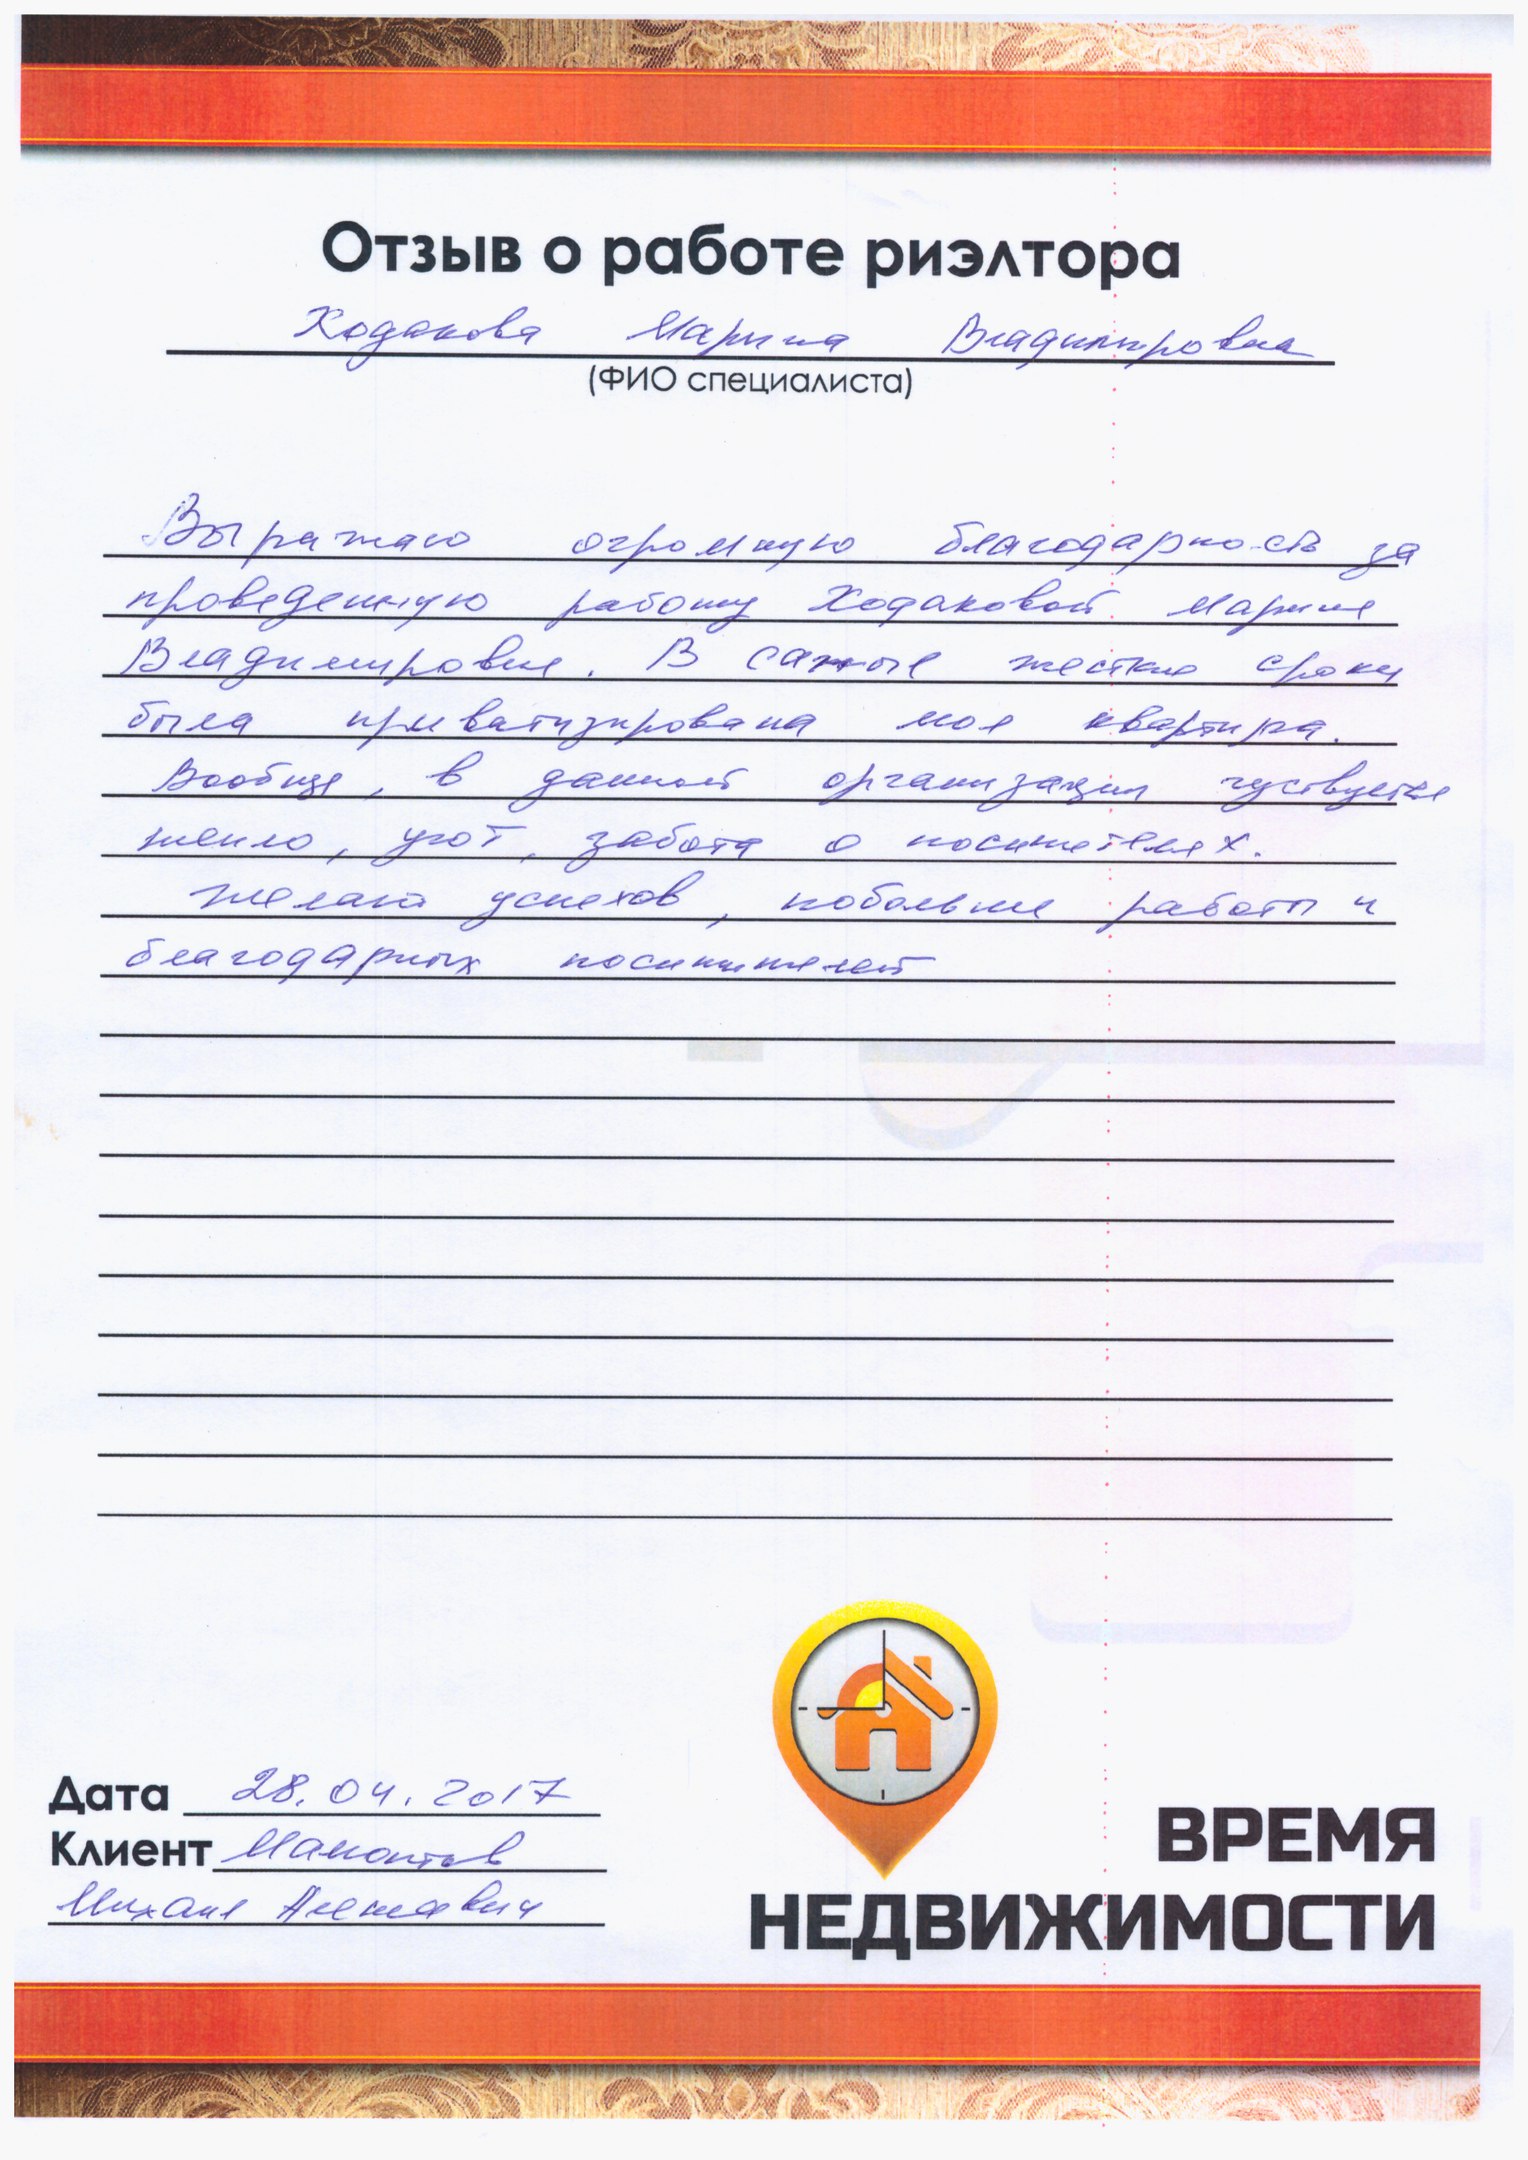 Отзыв о работе риэлтора
Ходакова Марина Владимировна
(ФИО специалиста)
Выражаю огромную благодарность за
проведенную работу Ходаковой Марине
Владимировне. В самые жесткие сроки
была приватизирована моя квартира.
Вообще, в данной организации чуствуется
тепло, уют, забота о посетителях.
Желаю успехов, побольше работы и
благодарных посетителей
Дата 28.04.2017
Клиент Мамонтов
Михаил Алексеевич
ВРЕМЯ
НЕДВИЖИМОСТИ